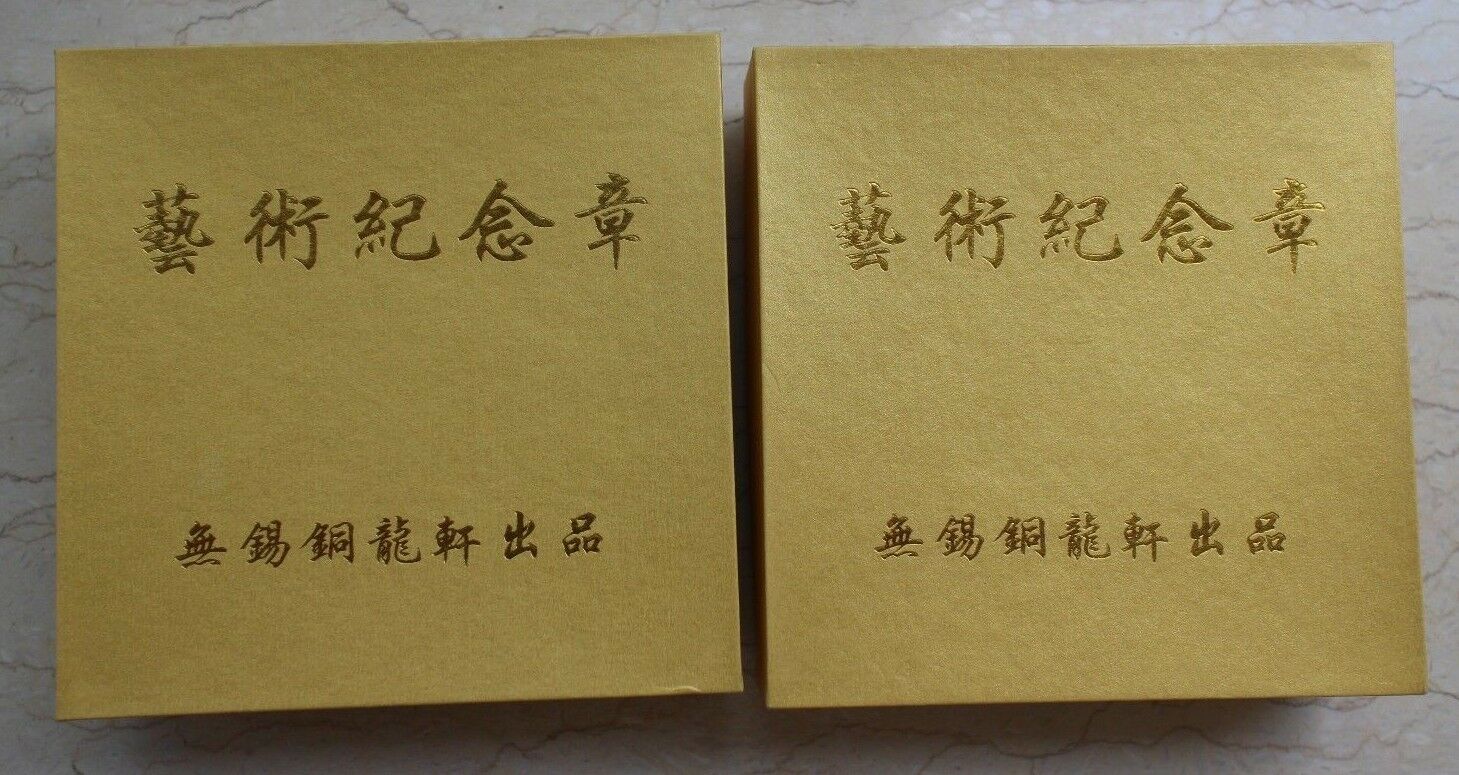 藝術紀念章
無錫銅龍軒出品
藝術紀念章
無錫銅龍軒出品